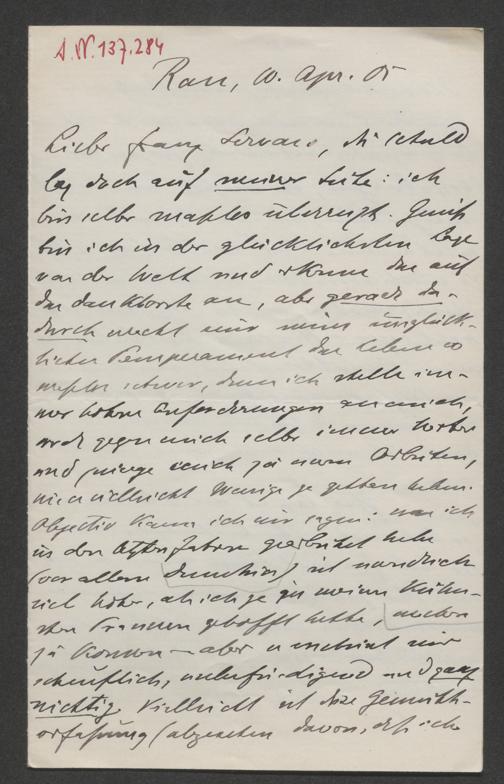 A.N. 137.284
Rom, 10. Apr. 05
Lieber Franz Servaes, die Schuld
lag doch auf meiner Seite: ich
bin selber maßlos überreizt. Gewiß
bin ich in der glücklichsten Lage
von der Welt und erkenne das auf
das dankbarste an, aber gerade da-
durch macht mir mein unglück-
liches Temperament das Leben so
maßlos schwer, denn ich stelle im-
mer höhere Anforderungen an mich,
werde gegen mich selbst immer härter
und zwinge mich zu neuen Arbeiten,
wie vielleicht Wenige je gethan haben.
Objectiv kann ich mir sagen: was ich
in den letzten Jahren gearbeitet habe
(vor allem) ist unendlich
viel höher, als ich je in meinen kühn-
sten Träumen gehofft hatte,
zu können – aber es scheint mir
scheußlich, unbefriedigend und ganz
nichtig. Vielleicht ist diese Gemüths-
verfassung (abgesehen davon, daß ich